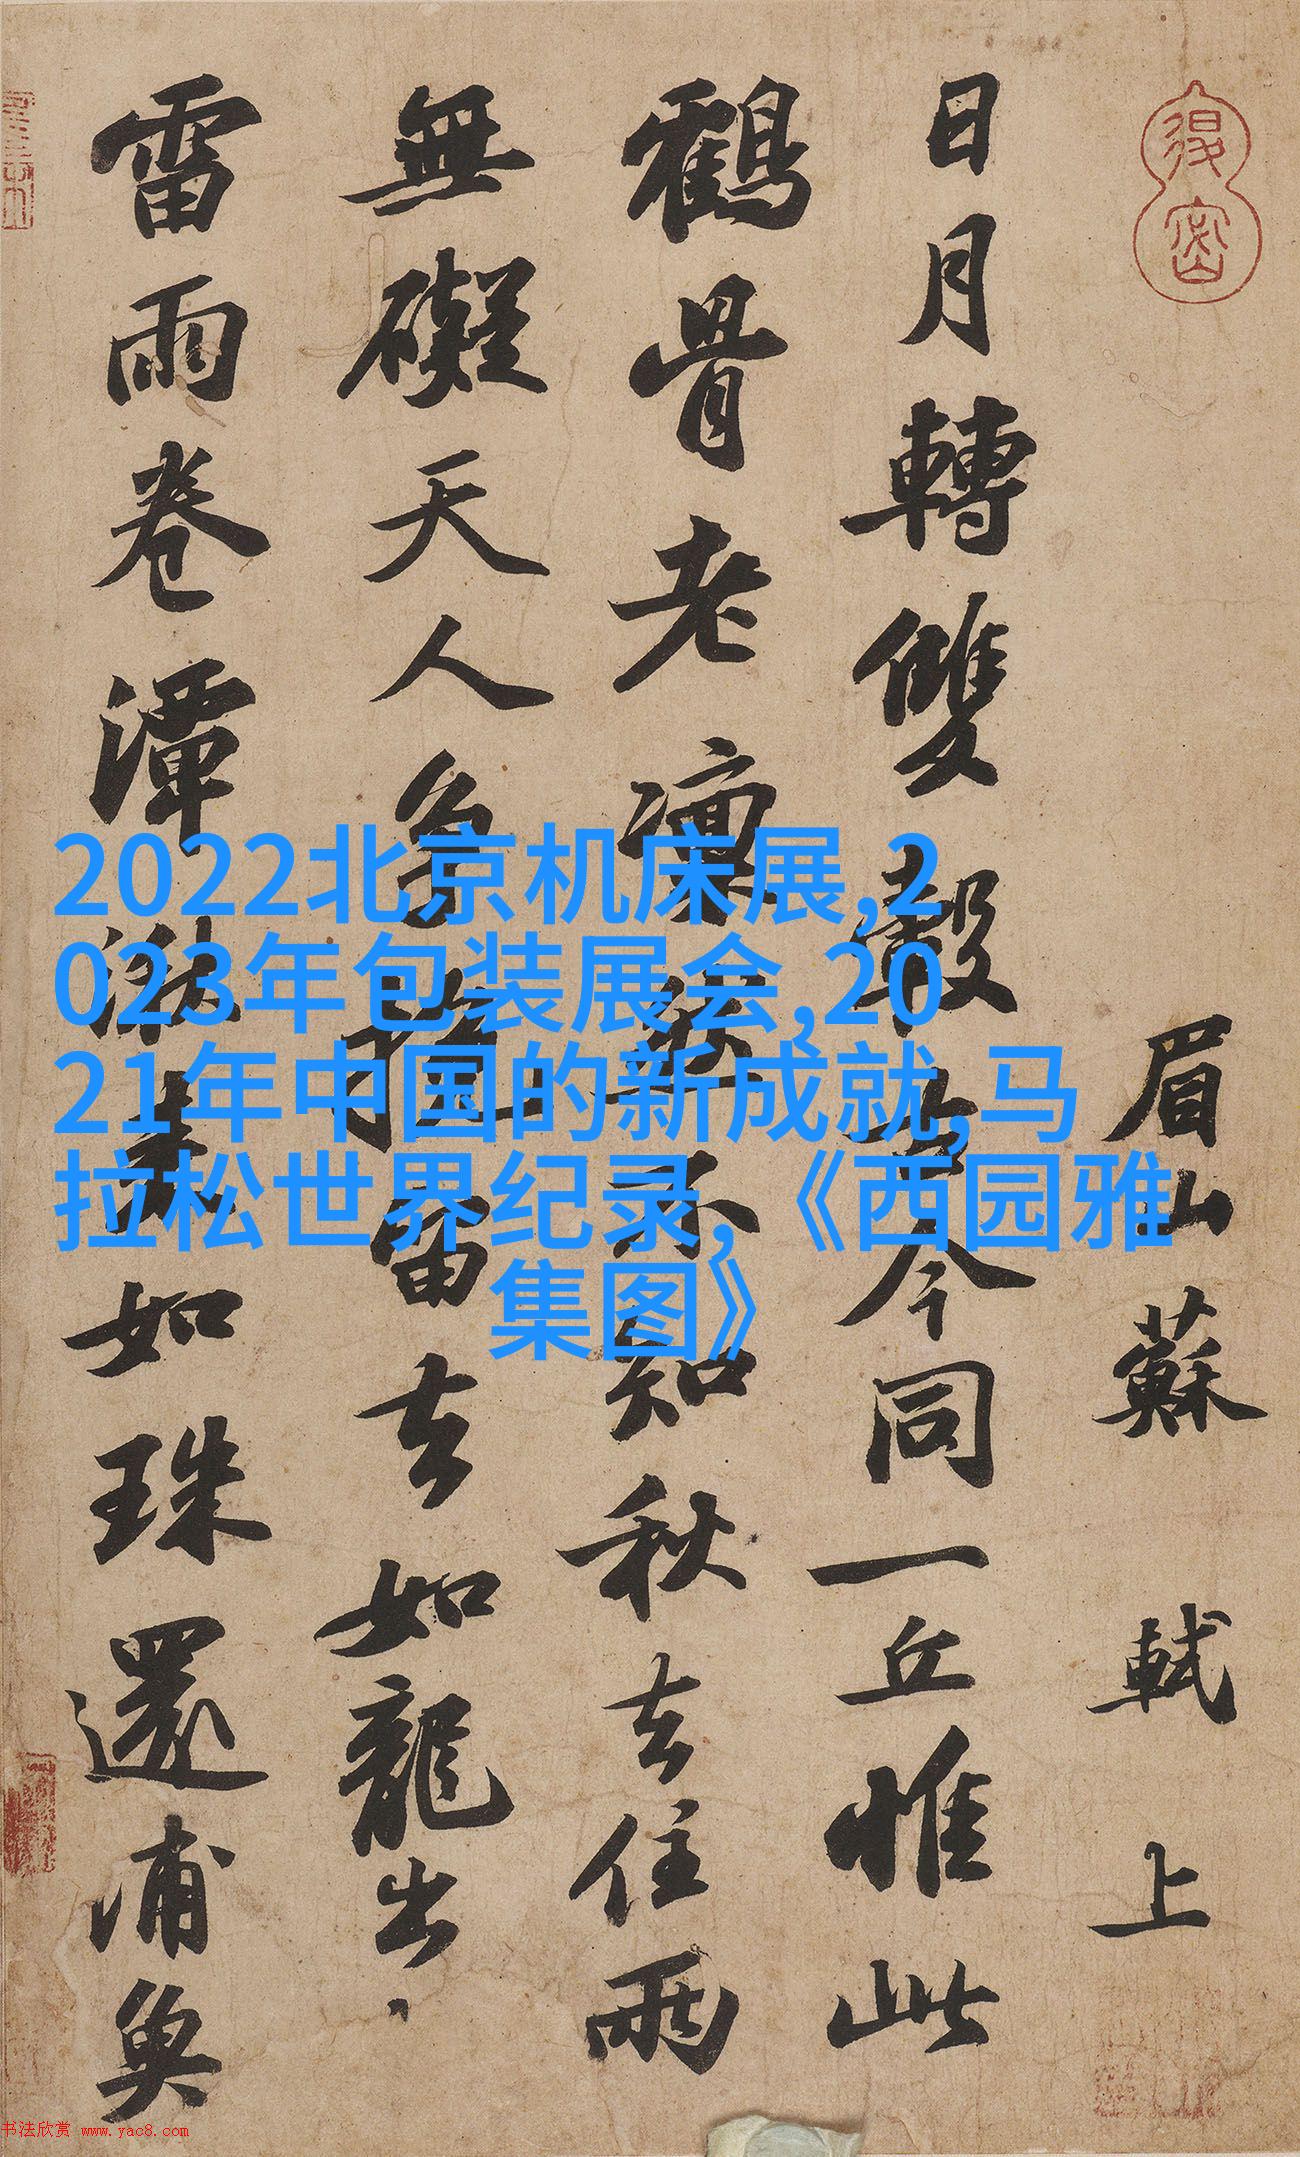 眉山蘇軾上
日月轉雙轂古今同一丘惟此
鶴骨老凜然不知秋去住兩
無礙天人争挽留去如龍出
雷雨卷潭湫來如珠還浦魚
2022北京机床展,2
023年包装展会,20
21年中国的新成就,马
拉松世界纪录,《西园雅
集图》
书法欣赏 www.yac8.com